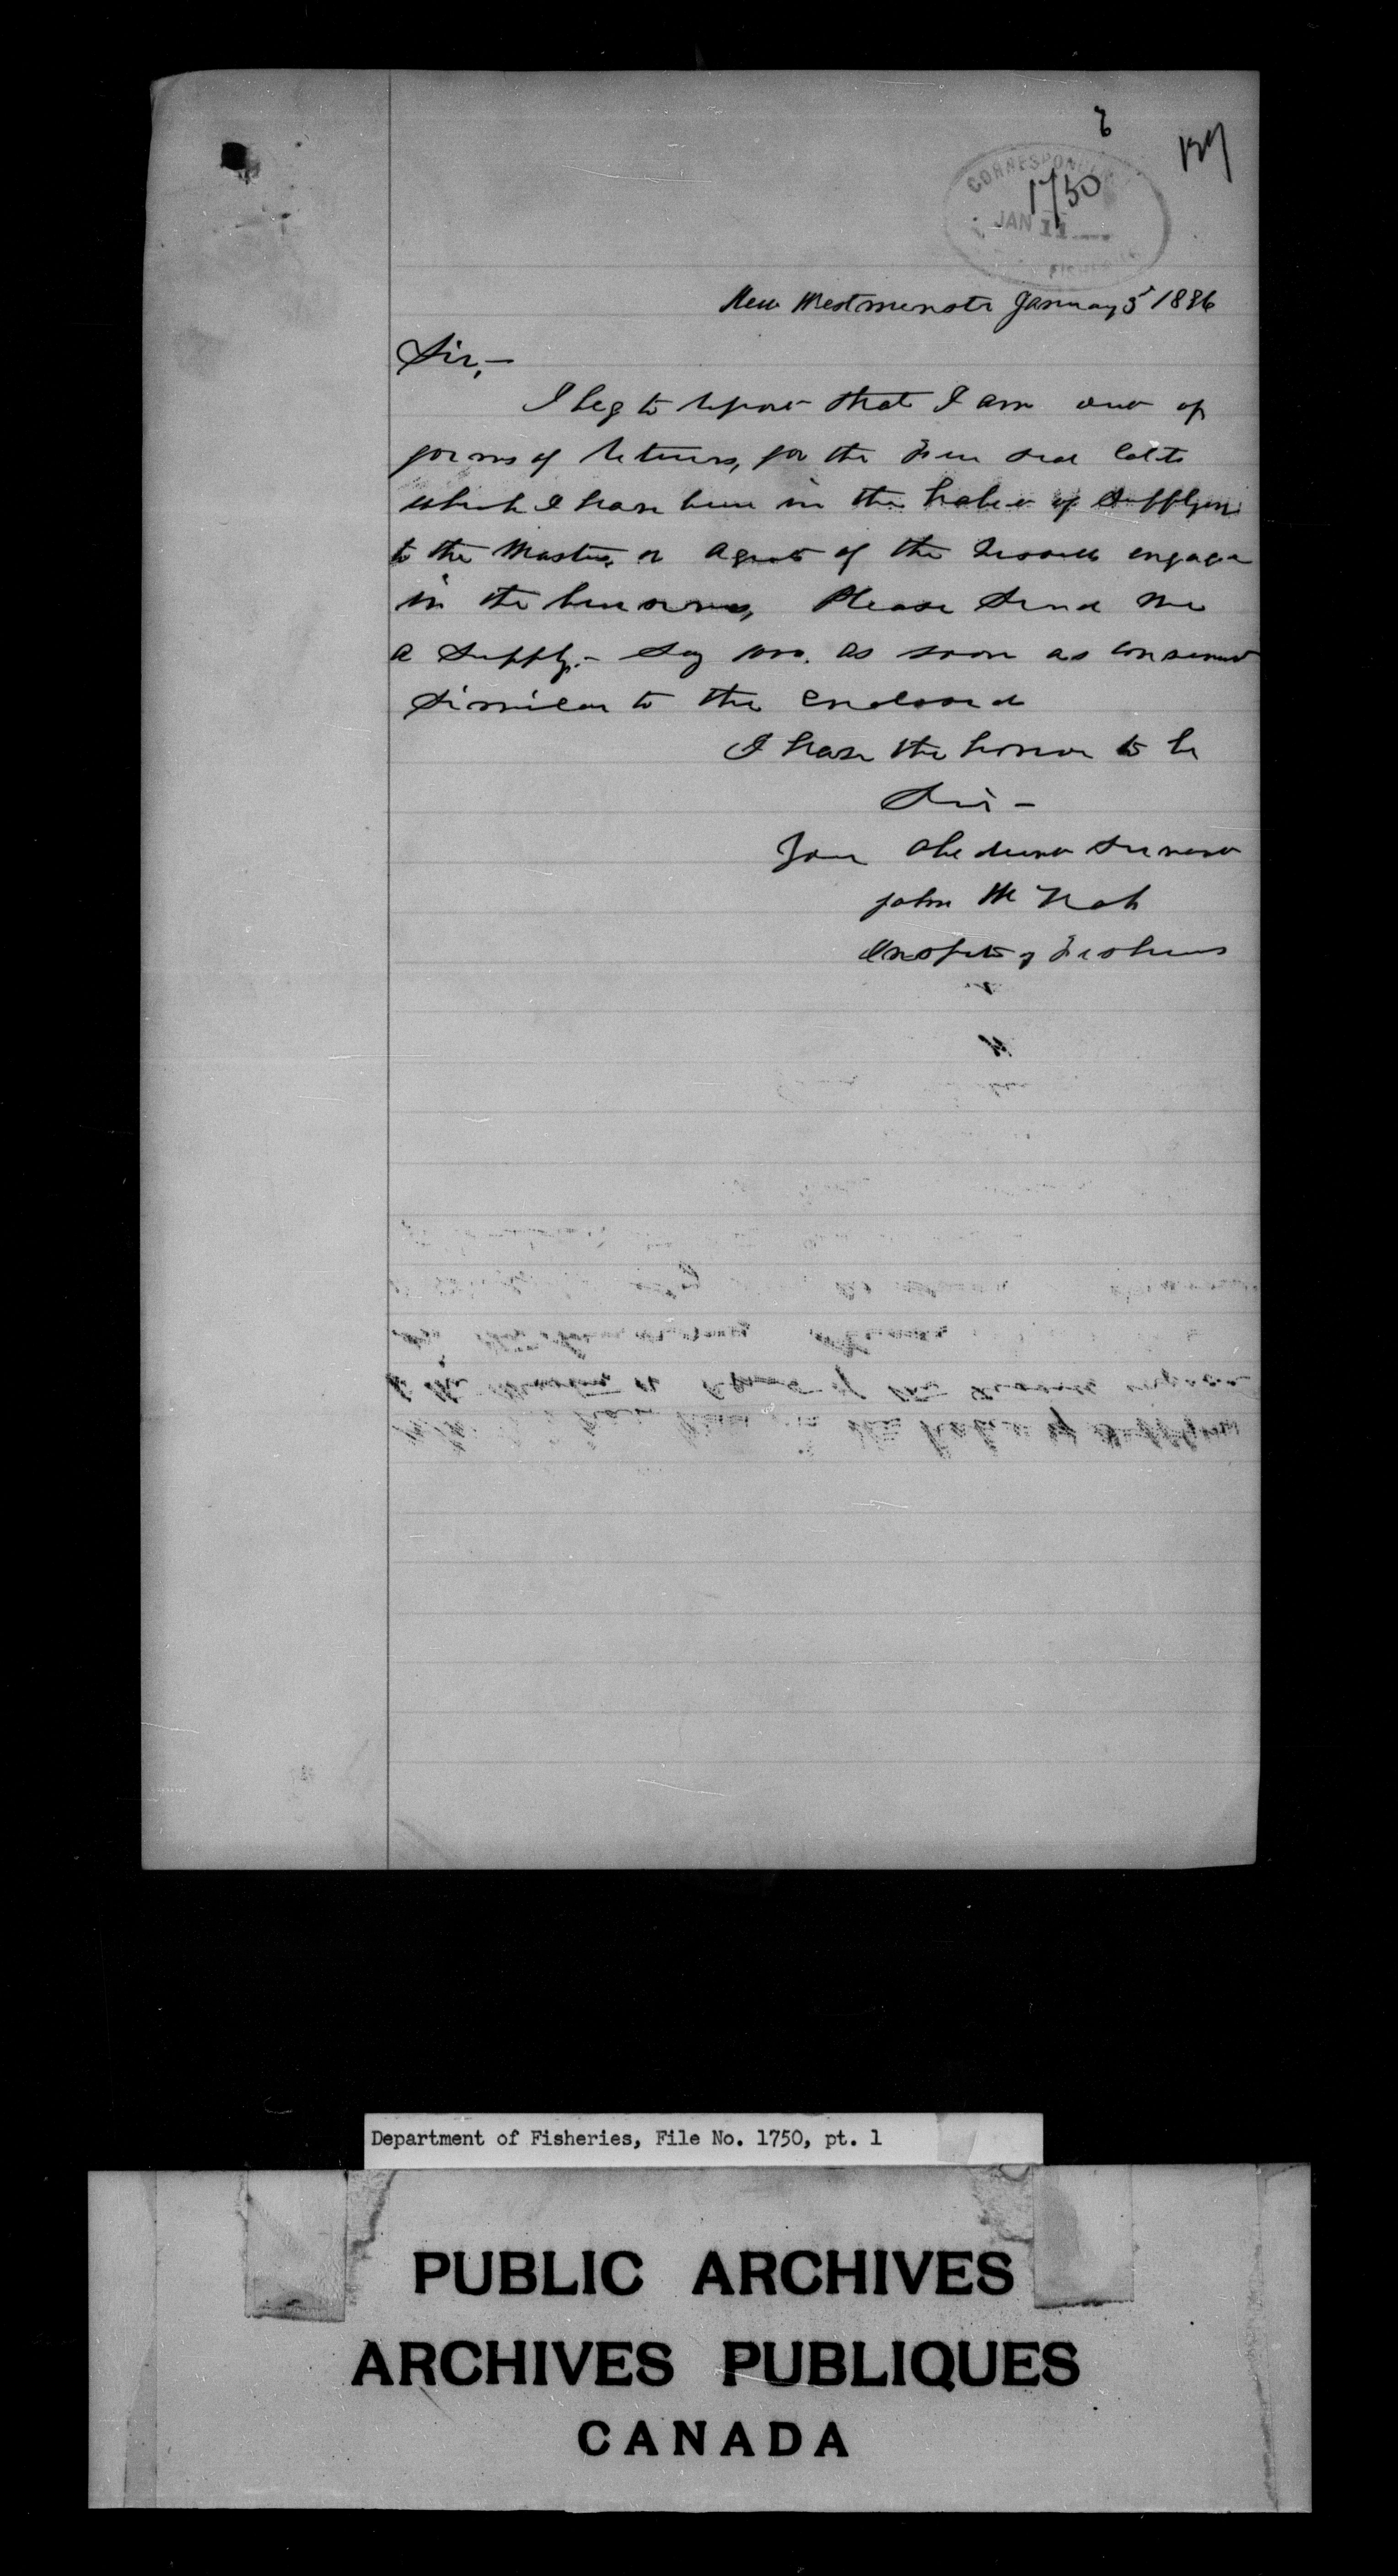 6
CORRESPONDENCE
1750
JAN 11
FISHERIES
New Westminster January 5 1896
Sir,—
I beg to report that I am out of
forms of returns, for the Fur Seal Catch
which I have been in the habit of supplying
to the Masters or Agents of the Vessels engaged
in the business, Please send me
a supply.- Say 100. as soon as convenient
similar to the enclosed
I have the honor to be
Sir —
Your obedient servant
John McNab
Inspector of Fisheries
Department of Fisheries, File No. 1750, pt. 1
PUBLIC ARCHIVES
ARCHIVES PUBLIQUES
CANADA